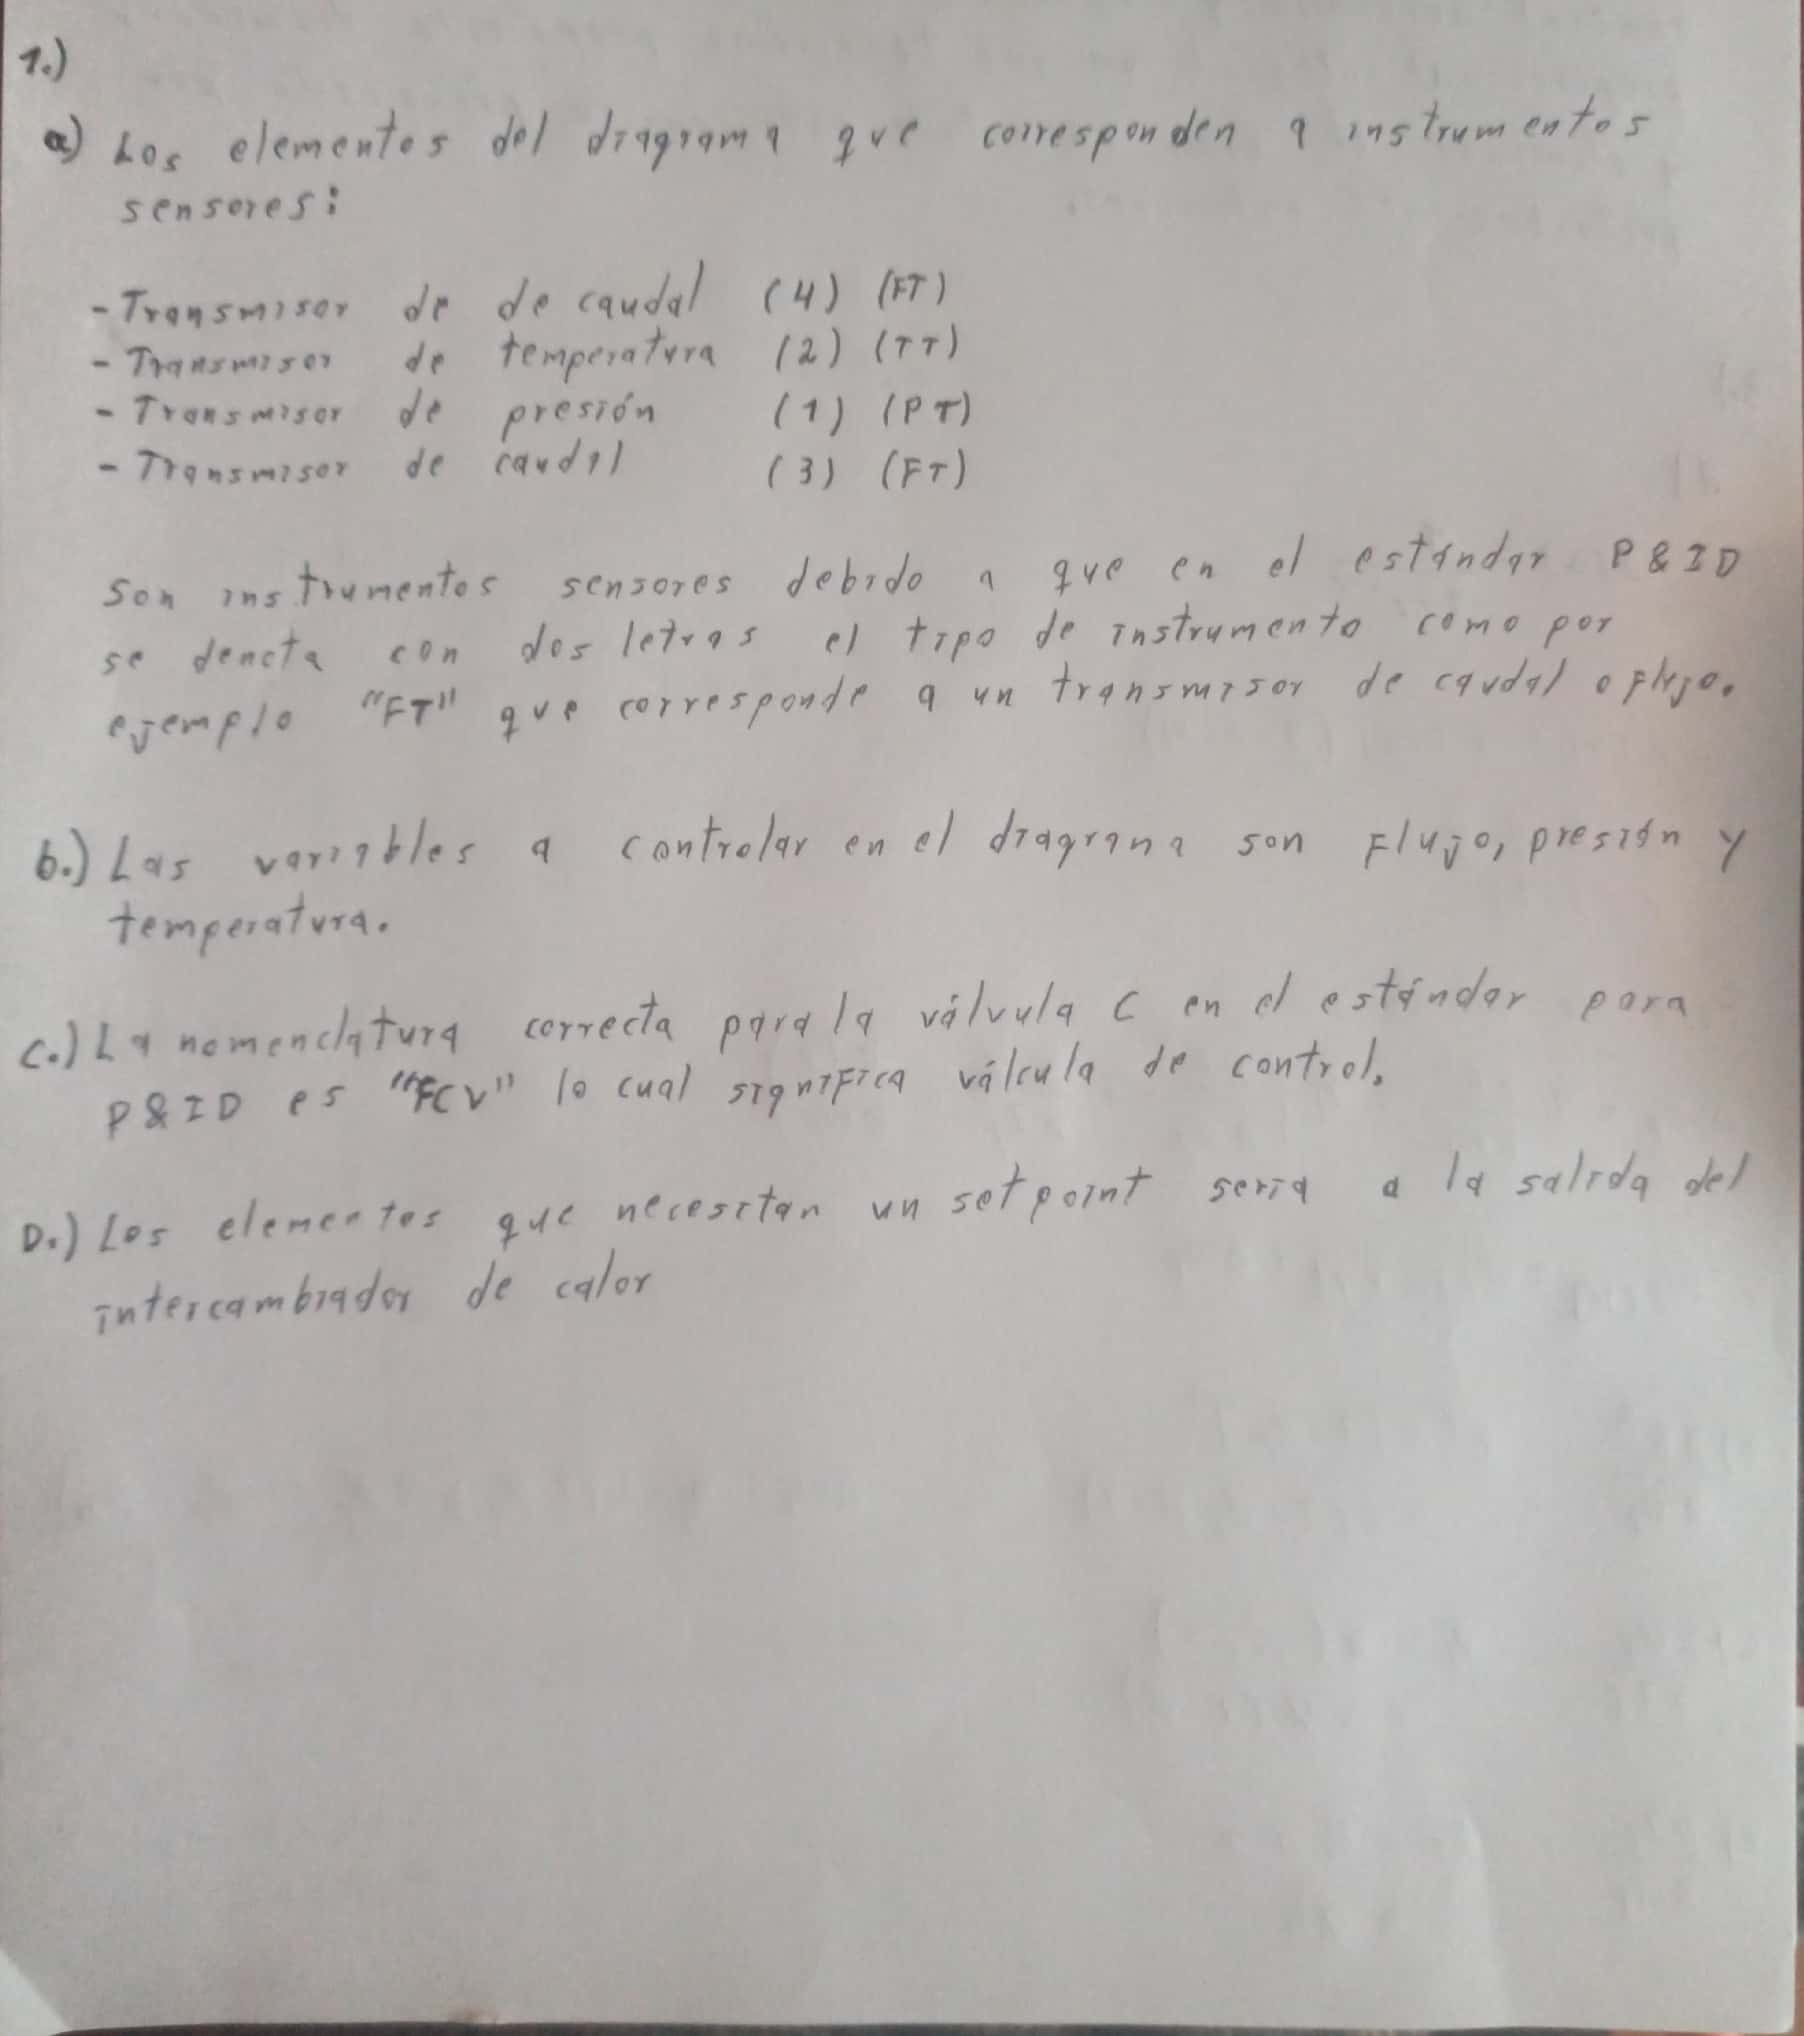 1.)
a) Los elementos del diagrama que corresponden a instrumentos
sensores:
- Transmisor de de caudal (4) (FT)
- Transmisor de temperatura (2) (TT)
- Transmisor de presión (1) (PT)
- Transmisor de caudal (3) (FT)
Son instrumentos sensores debido a que en el estándar P&ID
se denota con dos letras el tipo de instrumento como por
ejemplo "FT" que corresponde a un transmisor de caudal o flujo.
b.) Las variables a controlar en el diagrama son Flujo, presión y
temperatura.
C.) La nomenclatura correcta para la válvula C en el estándar para
P&ID es "FCV" lo cual significa válcula de control.
D.) Los elementos que necesitan un setpoint seria a la salida del
intercambiador de calor